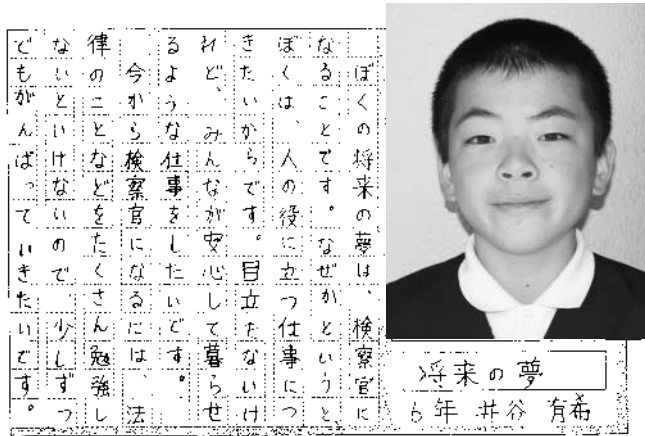 将来の夢
6年 井谷 有希
ぼくの将来の夢は、検察官に
なることです。なぜかというと、
ぼくは、人の役に立つ仕事につ
きたいからです。目立たないけ
れど、みんなが安心して暮らせ
るような仕事をしたいです。
今から検察官になるには、法
律のことなどをたくさん勉強し
ないといけないので、少しずつ
でもがんばっていきたいです。